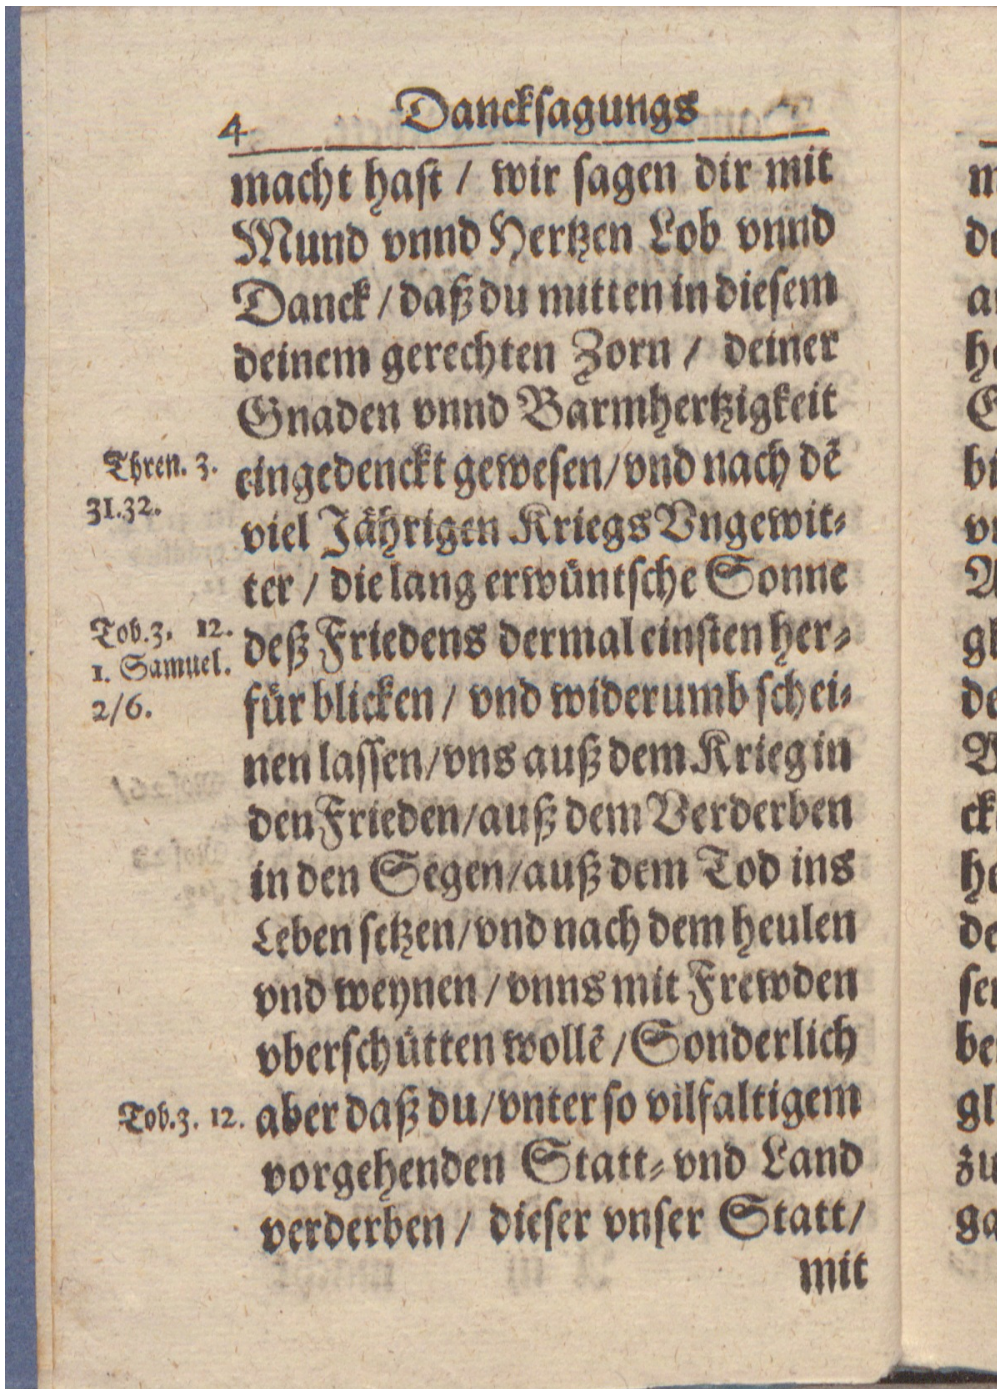 4 Danckſagungs
macht haſt / wir ſagen dir mit
Mund vnnd Hertzen Lob vnnd
Danck / daß du mitten in dieſem
deinem gerechten Zorn / deiner
Gnaden vnnd Barmhertzigkeit
Thren. 3.
31.32.
eingedenckt geweſen / vnd nach dẽ
viel Jährigen Kriegs Vngewit⸗
ter / die lang erwüntſche Sonne
Tob. 3. 12.
1. Samuel.
2/6.
deß Friedens dermal einſten her⸗
für blicken / vnd widerumb ſchei⸗
nen laſſen / vns auß dem Krieg in
den Frieden / auß dem Verderben
in den Segen / auß dem Tod ins
Leben ſetzen / vnd nach dem heulen
vnd weynen / vnns mit Frewden
vberſchütten wollẽ / Sonderlich
Tob. 3. 12.
aber daß du / vnter ſo vilfaltigem
vorgehenden Statt⸗ vnd Land
verderben / dieſer vnſer Statt /
mit